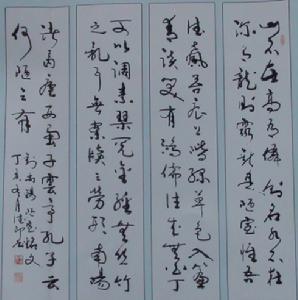 山不在高有僊則名水不在
深有龍則靈斯是陋室惟吾
德馨苔痕上階綠草色入簾
青談笑有鴻儒往來無白丁
可以調素琴閱金經無絲竹
之亂耳無案牘之勞形南陽
諸葛廬西蜀子雲亭孔子云
何陋之有
劉禹錫陋室銘文
丁亥年